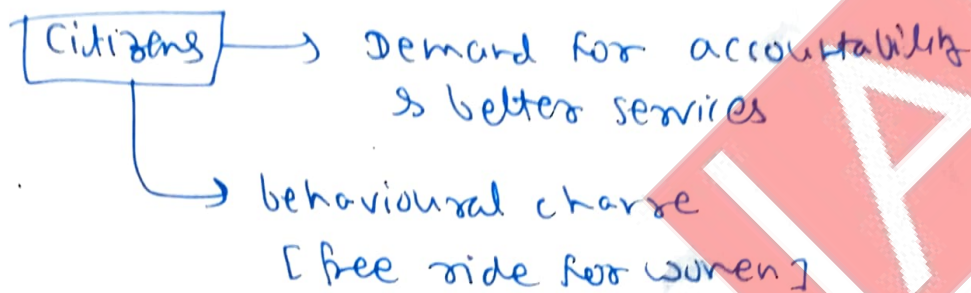 Citizens → Demand for accountability
& better services
→ behavioural change
[free ride for women]
IA